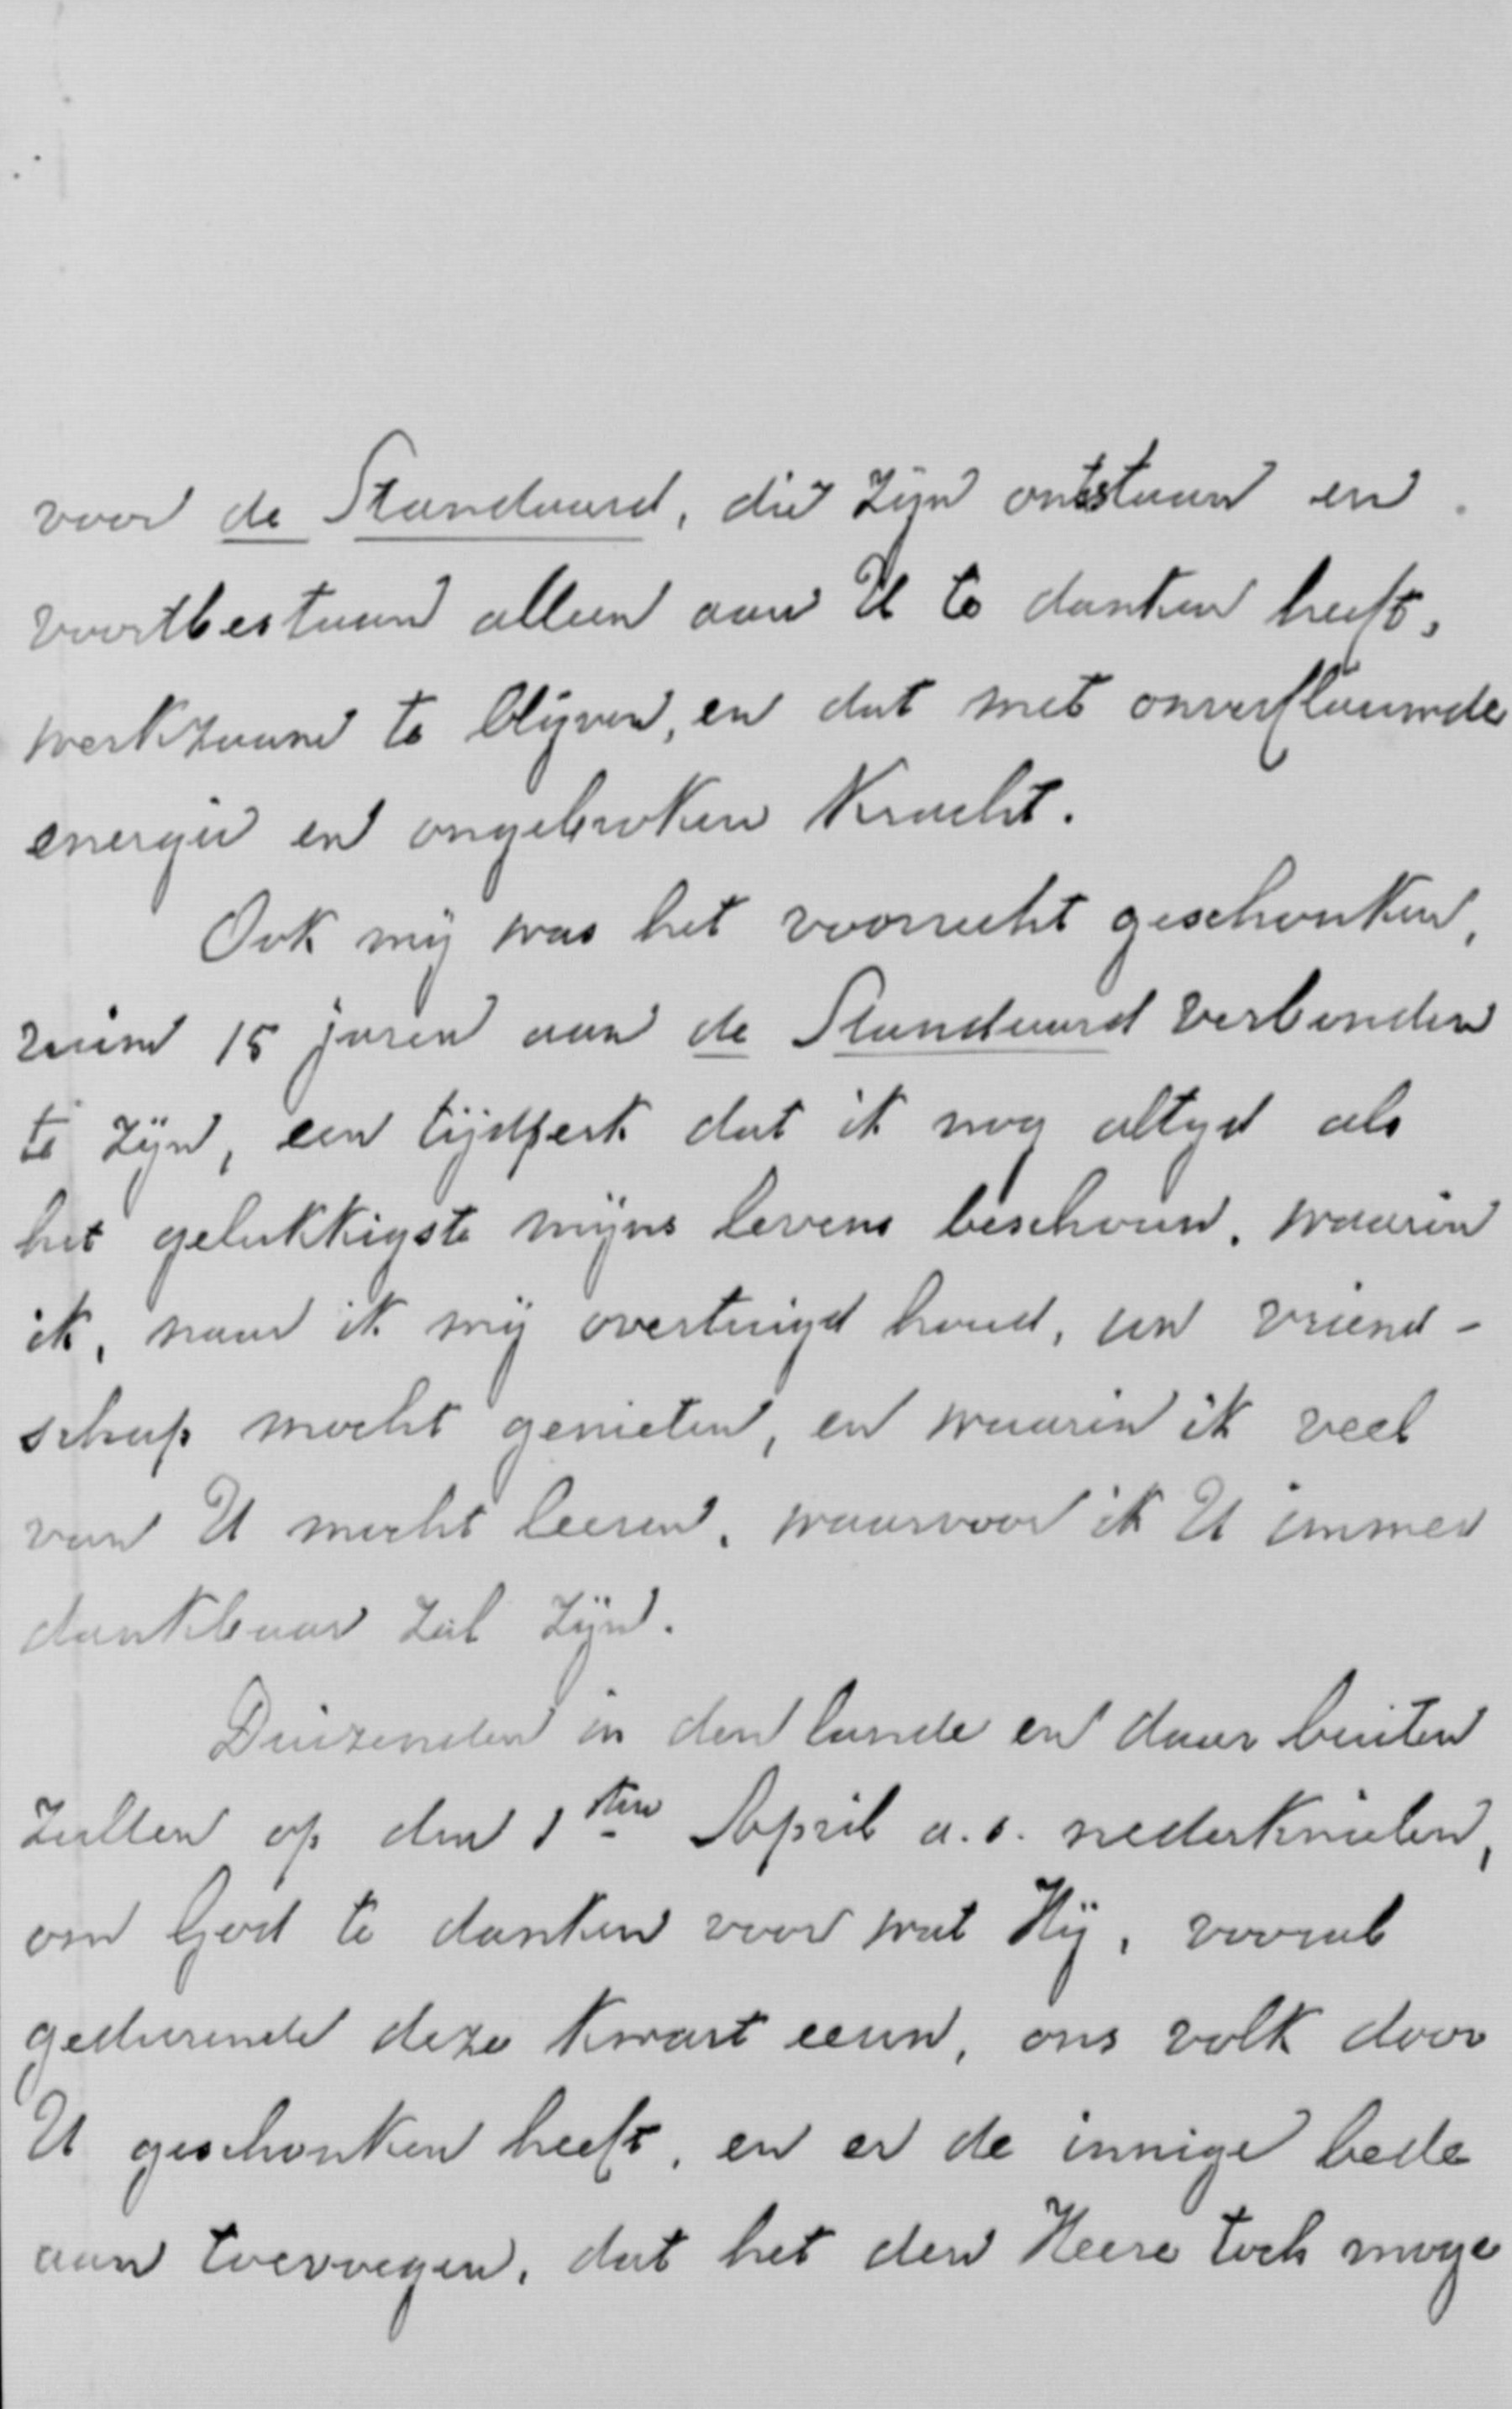 voor de Standaard, die zijn ontstaan en
voortbestaan alleen aan U te danken heeft,
werkzaam te blijven, en dat met onverflauwde
energie en ongebroken kracht.
Ook mij was het voorrecht geschonken,
ruim 15 jaren aan de Standaard verbonden
te zijn, een tijdperk dat ik nog altijd als
het gelukkigste mijns levens beschouw, waarin
ik, naar ik mij overtuigd houd, uw vriend-
schap mocht genieten, en waarin ik veel
van U mocht leeren, waarvoor ik U immer
dankbaar zal zijn.
Duizenden in den lande en daar buiten
zullen op den 1sten April a.s. nederknielen,
om God te danken voor wat Hij, vooral
gedurende deze kwart eeuw, ons volk door
U geschonken heeft, en er de innige bede
aan toevoegen, dat het den Heere toch moge